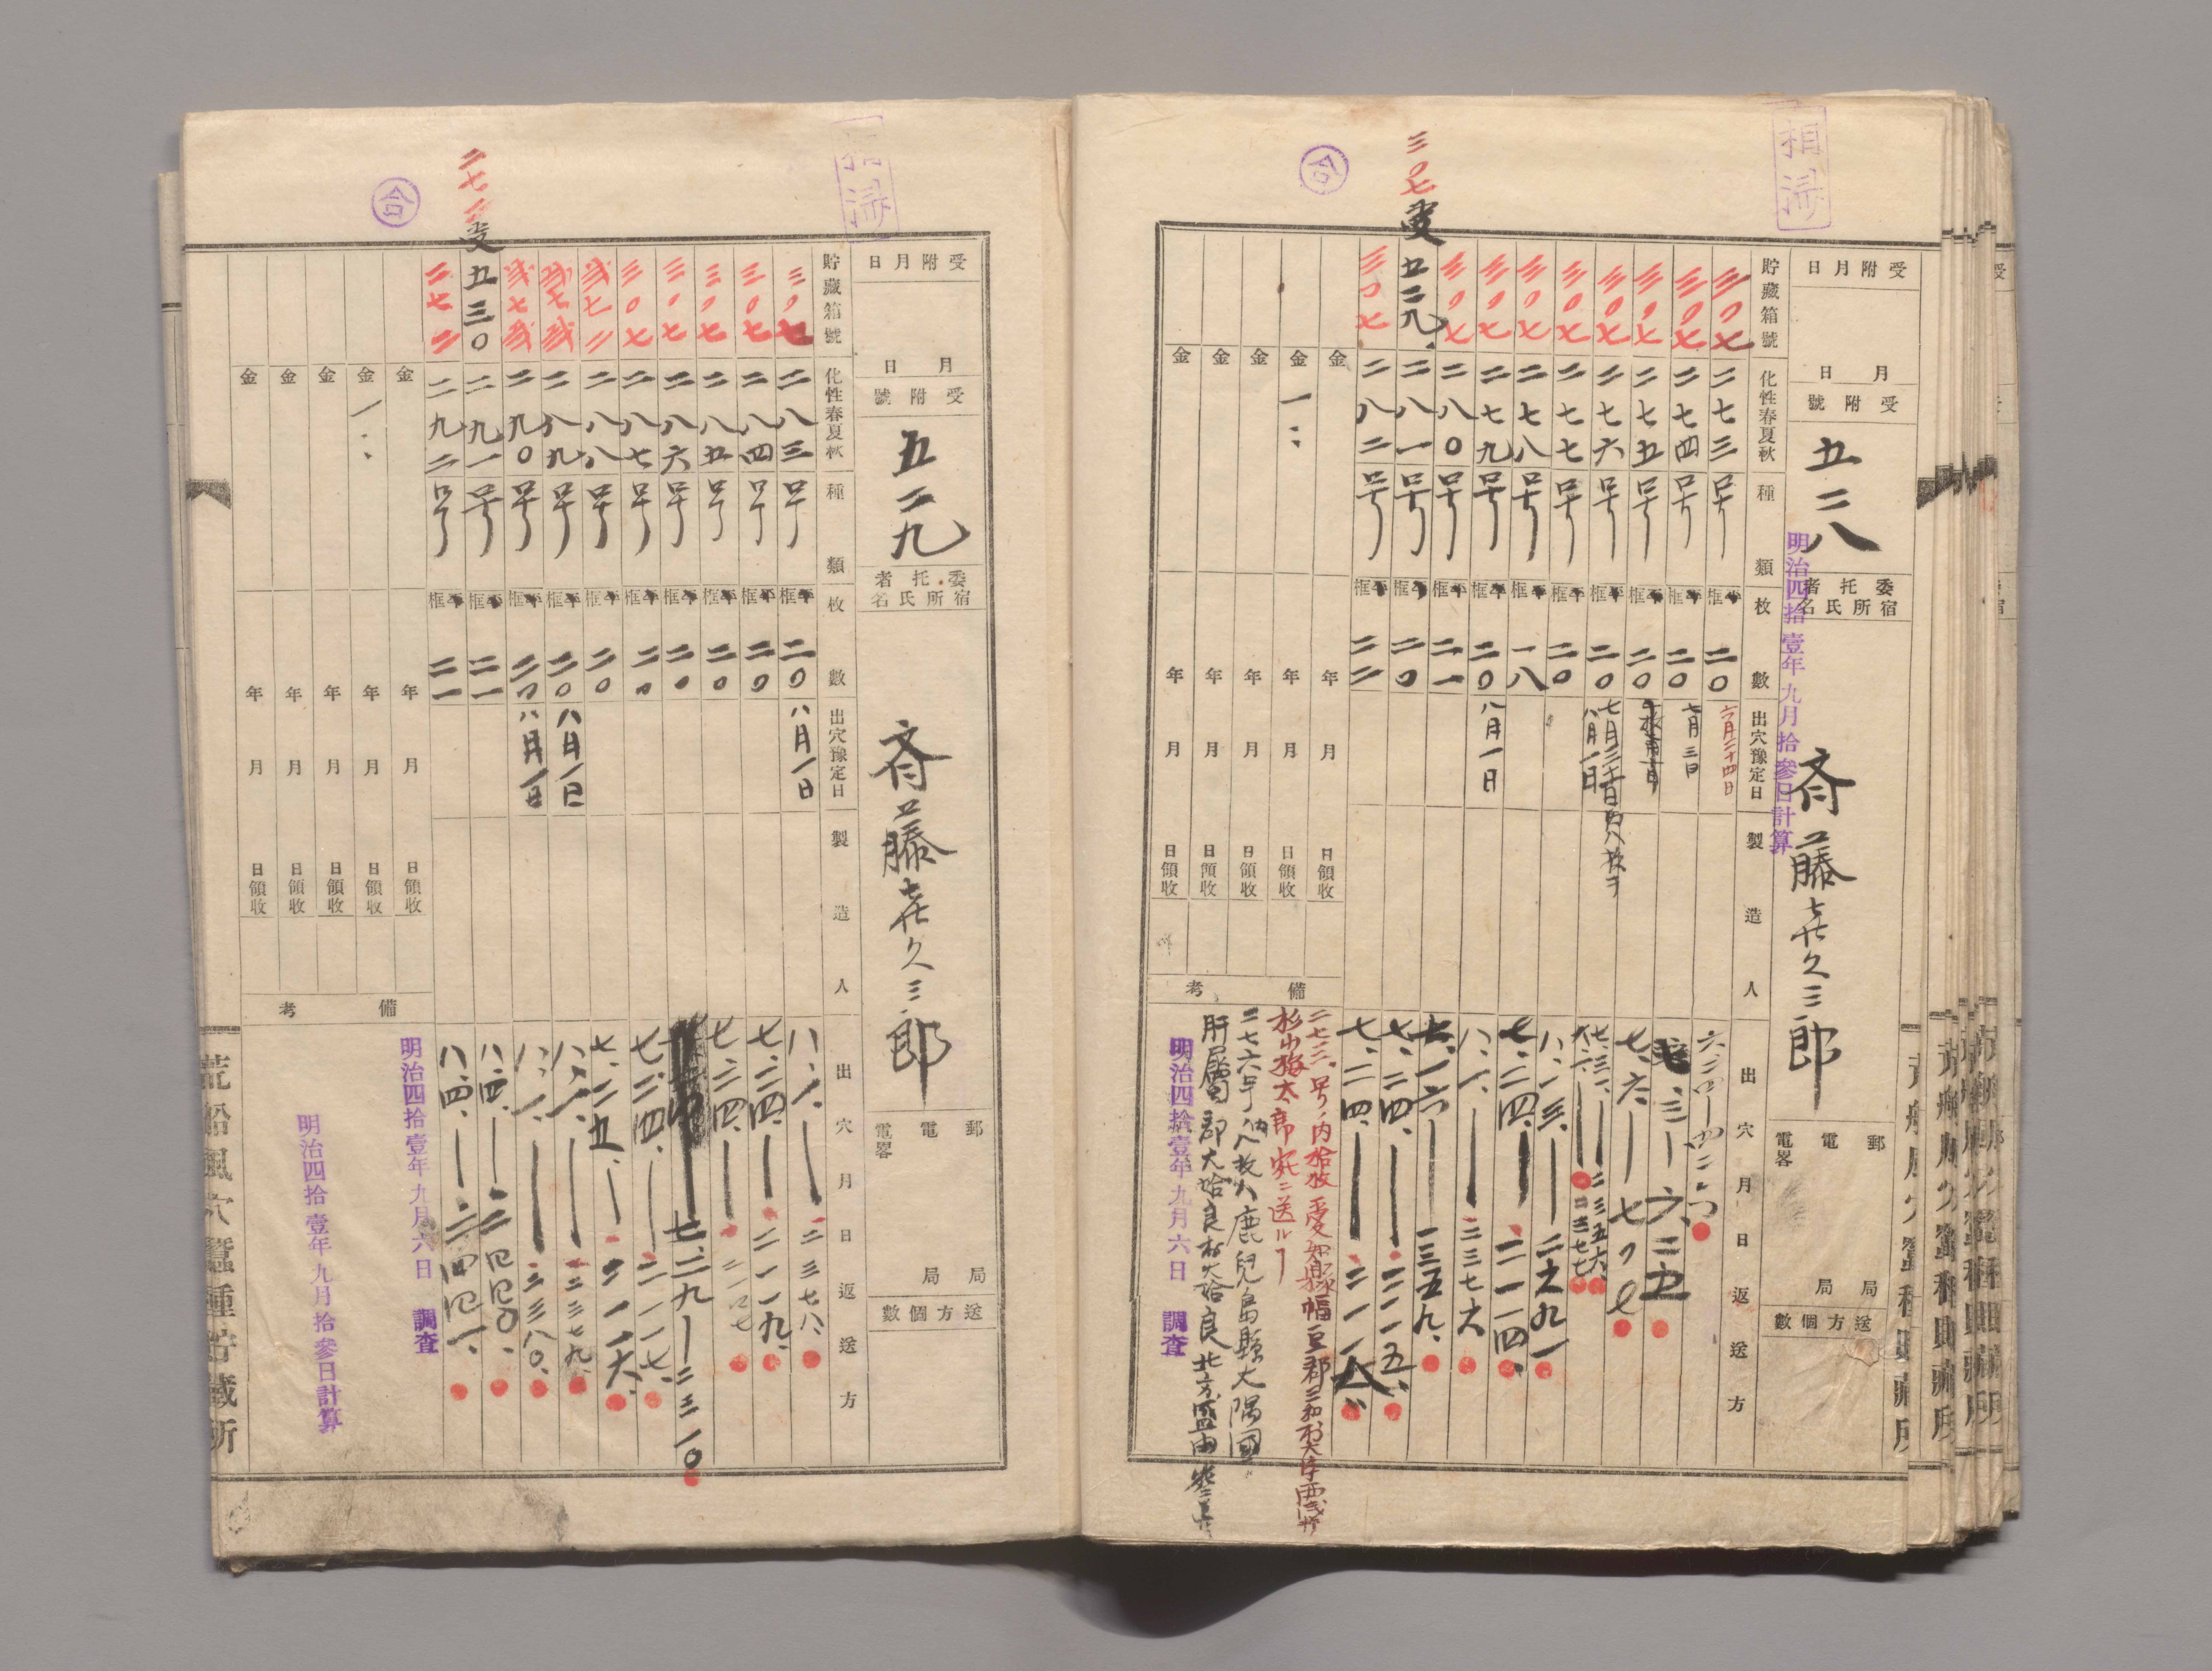 相済
合
三〇七
変
受附月日
月 日
受附號
五二八
委托者
宿所氏名
斎藤喜久三郎
郵 電
電畧
局 局
送方個數
明治四拾壹年九月拾參日計算
貯藏箱號
化性春夏秋種類
枚數
出穴豫定日
製造人
出穴月日返送方
三〇七 二七三号 框 二〇 六月二十四日
三〇七 二七四号 框 二〇 七月三日
三〇七 二七五号 框 二〇 七、六、
三〇七 二七六号 框 二〇 八月一日
三〇七 二七七号 框 二〇 八、一三、 二五九一
三〇七 二七八号 框 一八 七、二四、 二一一四、
三〇七 二七九号 框 二〇 八月一日 八、一、 二三七六
三〇七 二八〇号 框 二一 一三五九、
五二九、 二八一号 框 二〇 七、二四、 二一一五、
三〇七 二八二号 框 二二 七、二四、
金 年 月 日領收
金 一 年 月 日領收
金 年 月 日領收
金 年 月 日領收
金 年 月 日領收
備考
杉山梅太郎宛ニ送ル
鹿兒島縣大隅國
肝属郡大姶良村大姶良北方
明治四拾壹年九月六日 調査
相済
合
二七二
変
受附月日
月 日
受附號
五二九
委托者
宿所氏名
斎藤喜久三郎
郵 電
電畧
局 局
送方個數
貯藏箱號
化性春夏秋種類
枚數
出穴豫定日
製造人
出穴月日返送方
三〇七 二八三号 框 二〇 八月一日 八、一、 二三七八、
三〇七 二八四号 框 二〇 七、二四、 二一一九、
三〇七 二八五号 框 二〇 七、二四、
三〇七 二八六号 框 二〇 七、二九 二三一〇
三〇七 二八七号 框 二〇 七、二四、 二一一七、
弐七二 二八八号 框 二〇 七、二五、 二一一六、
弐七弐 二八九号 框 二〇 八月一日 八、一、 二三七九、
弐七弐 二九〇号 框 二〇 八月一日 八、一、 二三八〇、
五三〇 二九一号 框 二一 八、四、 二四四〇、
二七二 二九二号 框 二一 八、四、 二四四一、
金 年 月 日領收
金 一 年 月 日領收
金 年 月 日領收
金 年 月 日領收
金 年 月 日領收
備考
明治四拾壹年九月六日 調査
明治四拾壹年九月拾參日計算
荒船風穴蠶種貯藏所